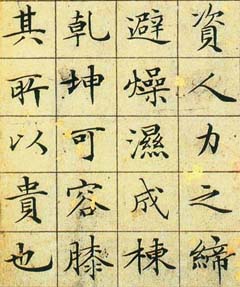 資人力之締
避燥濕成棟
乹坤可容膝
其所以貴也